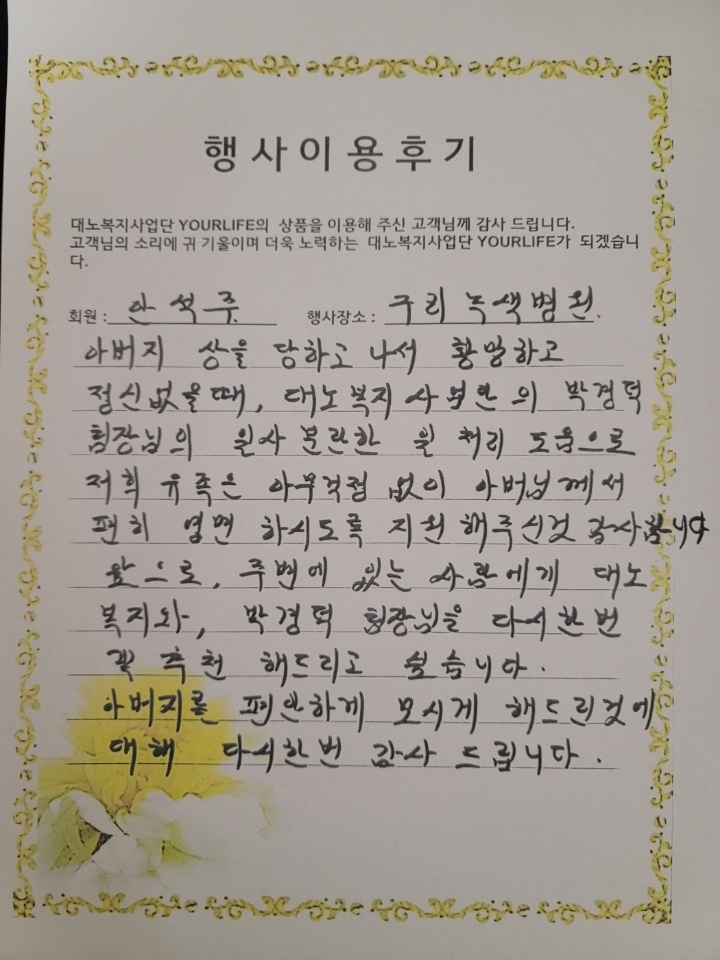 행사이용후기
대노복지사업단 YOURLIFE의 상품을 이용해 주신 고객님께 감사 드립니다.
고객님의 소리에 귀 기울이며 더욱 노력하는 대노복지사업단 YOURLIFE가 되겠습니
다.
회원 : 안석주 행사장소 : 구리 녹색병원.
아버지 상을 당하고 나서 황망하고
정신없을때, 대노복지사업단의 박경덕
팀장님의 일사분란한 일처리 도움으로
저희 유족은 아무걱정 없이 아버님께서
편히 영면 하시도록 지원해주신것 감사합니다
앞으로, 주변에 있는 사람에게 대노
복지와, 박경덕 팀장님을 다시한번
꼭 추천 해드리고 싶습니다.
아버지를 편안하게 모시게 해드린것에
대해 다시한번 감사 드립니다.